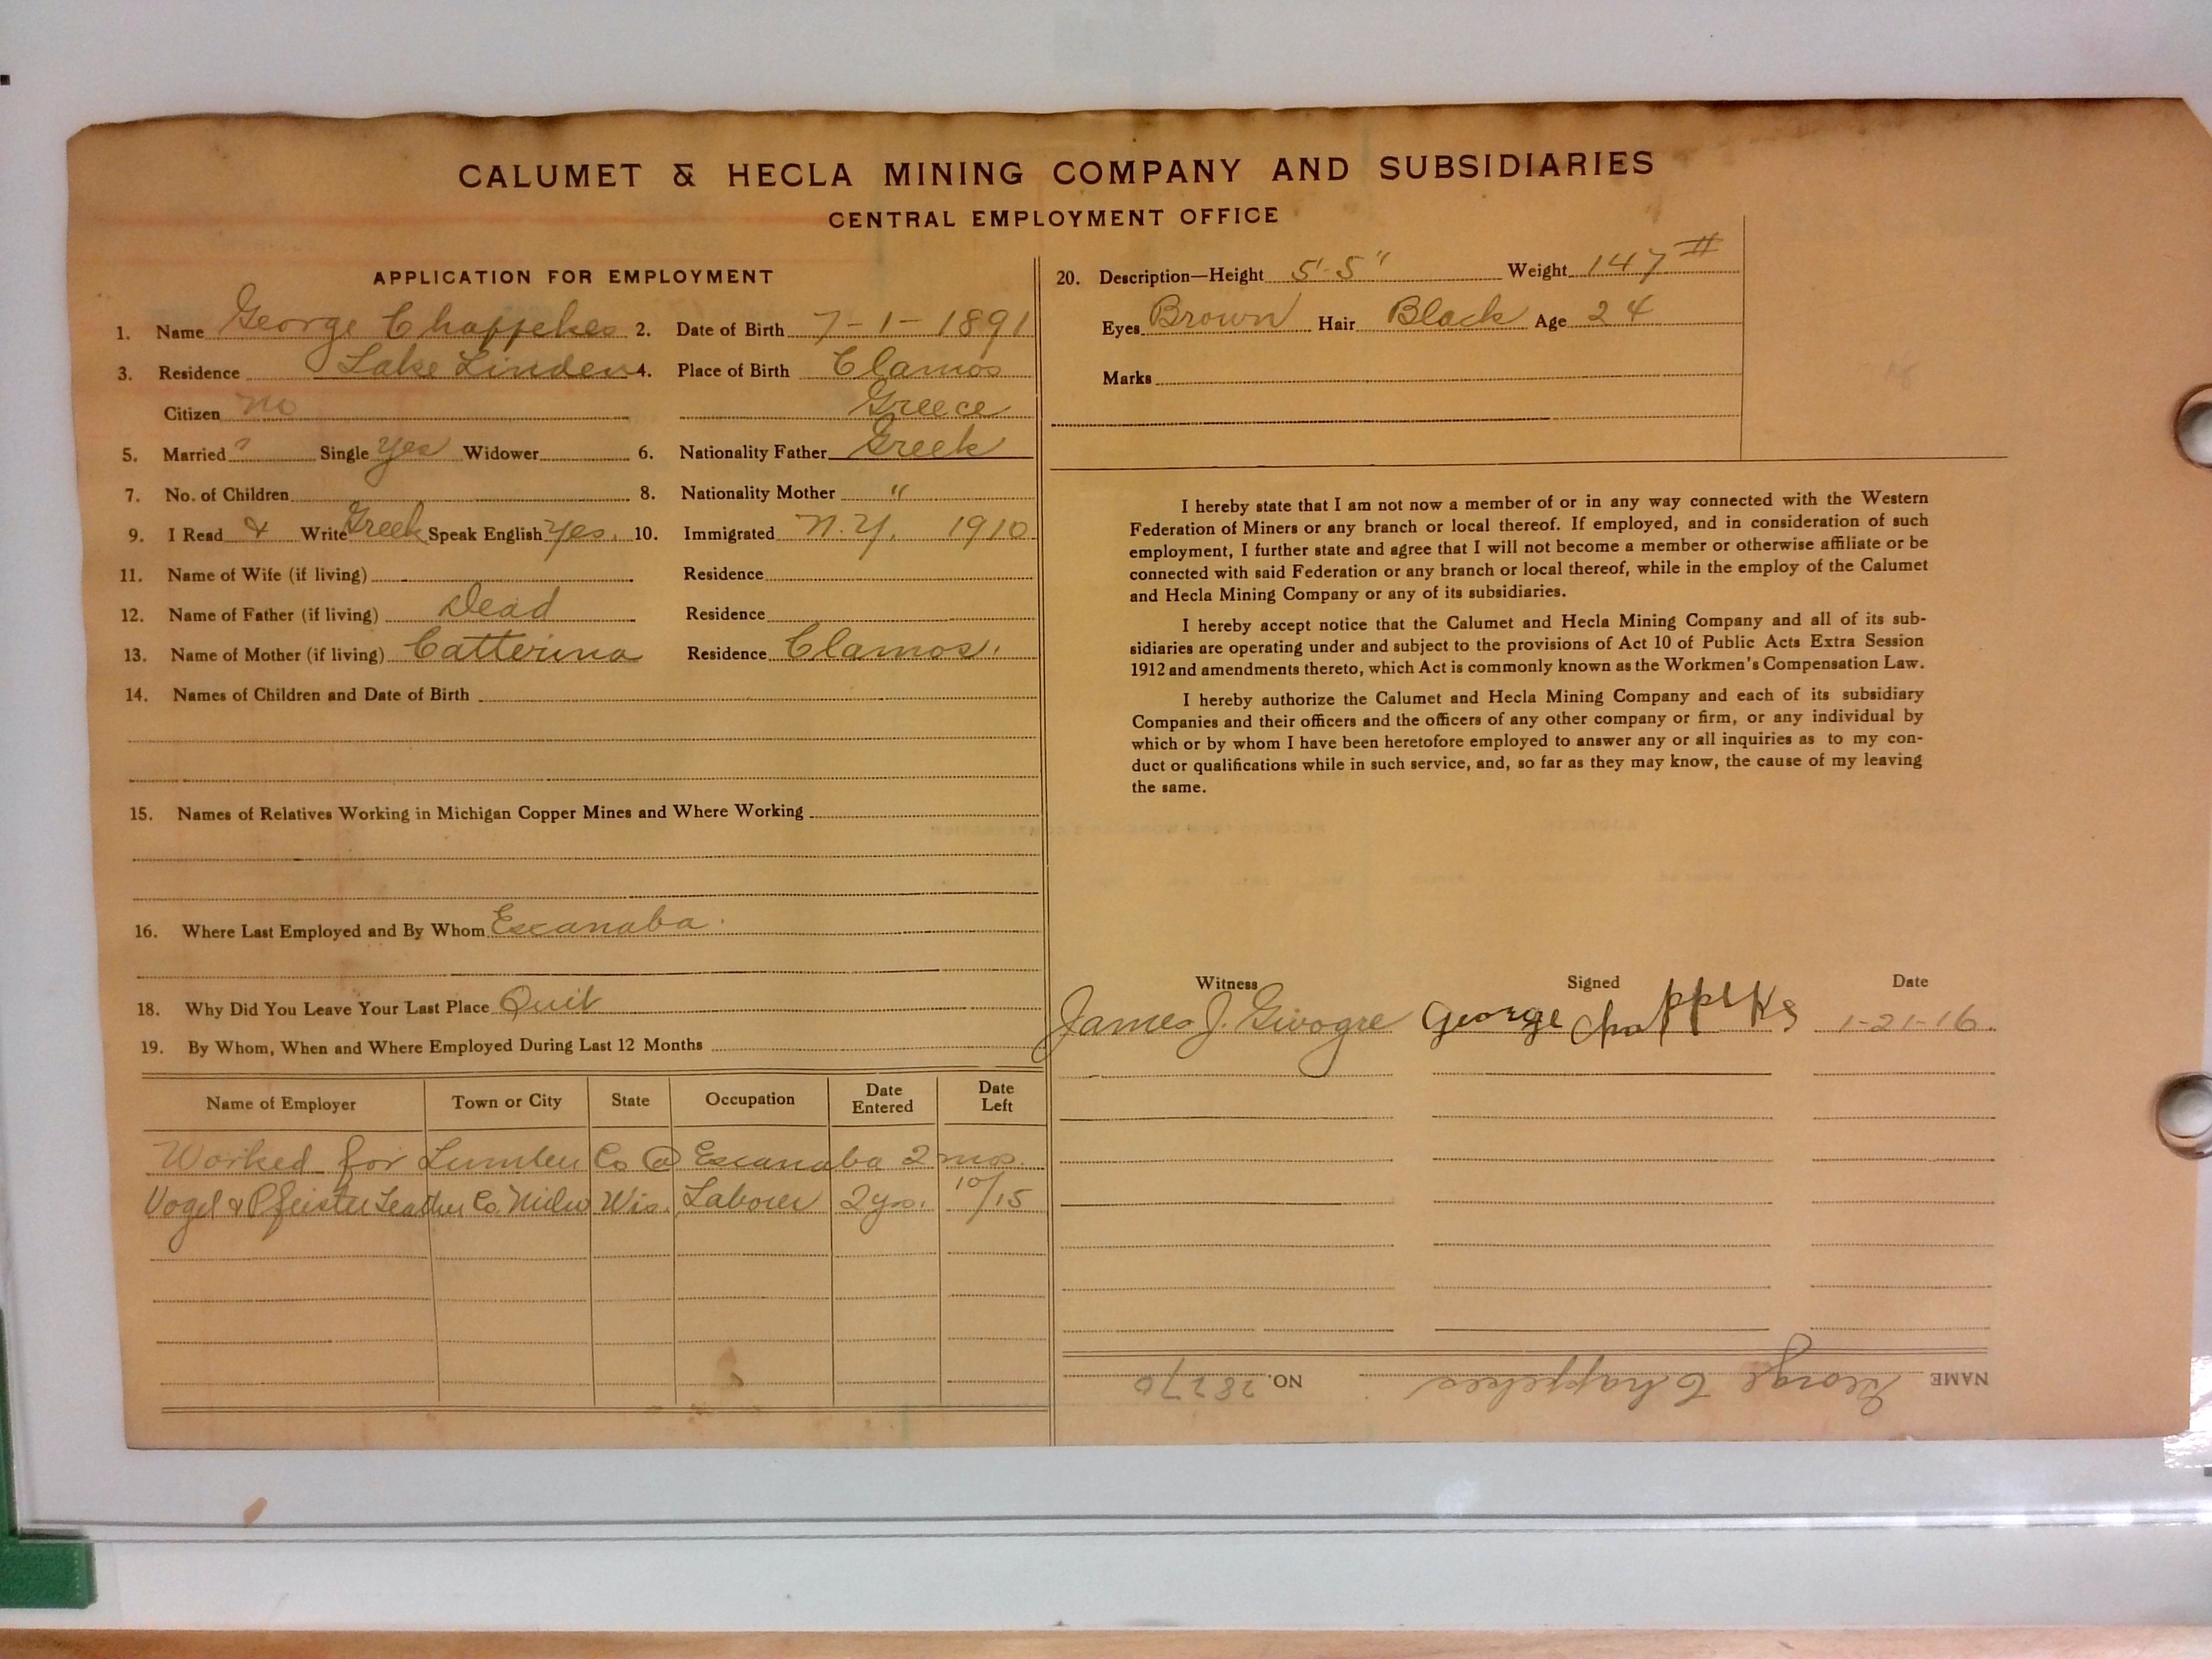 CALUMET & HECLA MINING COMPANY AND SUBSIDIARIES
CENTRAL EMPLOYMENT OFFICE
APPLICATION FOR EMPLOYMENT
1. Name George Chappekes 2. Date of Birth 7-1-1891
3. Residence Lake Linden 4. Place of Birth Clamos
Citizen no Greece
5. Married ? Single yes Widower 6. Nationality Father Greek
7. No. of Children 8. Nationality Mother "
9. I Read & Write Greek Speak English yes. 10. Immigrated N.Y. 1910
11. Name of Wife (if living) Residence
12. Name of Father (if living) Dead Residence
13. Name of Mother (if living) Catterina Residence Clamos.
14. Names of Children and Date of Birth
15. Names of Relatives Working in Michigan Copper Mines and Where Working
16. Where Last Employed and By Whom Escanaba.
18. Why Did You Leave Your Last Place Quit
19. By Whom, When and Where Employed During Last 12 Months
Name of Employer Town or City State Occupation Date Entered Date Left
Worked for Lumber Co @ Escanaba 2 mos.
Vogel & Pfeister Leather Co. Milw Wis. Laborer 2 yrs. 10/15
20. Description—Height 5'-5" Weight 147 #
Eyes Brown Hair Black Age 24
Marks
I hereby state that I am not now a member of or in any way connected with the Western
Federation of Miners or any branch or local thereof. If employed, and in consideration of such
employment, I further state and agree that I will not become a member or otherwise affiliate or be
connected with said Federation or any branch or local thereof, while in the employ of the Calumet
and Hecla Mining Company or any of its subsidiaries.
I hereby accept notice that the Calumet and Hecla Mining Company and all of its sub-
sidiaries are operating under and subject to the provisions of Act 10 of Public Acts Extra Session
1912 and amendments thereto, which Act is commonly known as the Workmen's Compensation Law.
I hereby authorize the Calumet and Hecla Mining Company and each of its subsidiary
Companies and their officers and the officers of any other company or firm, or any individual by
which or by whom I have been heretofore employed to answer any or all inquiries as to my con-
duct or qualifications while in such service, and, so far as they may know, the cause of my leaving
the same.
Witness Signed Date
James J. George Chappekes 1-21-16.
NAME George Chappekes NO. 28270